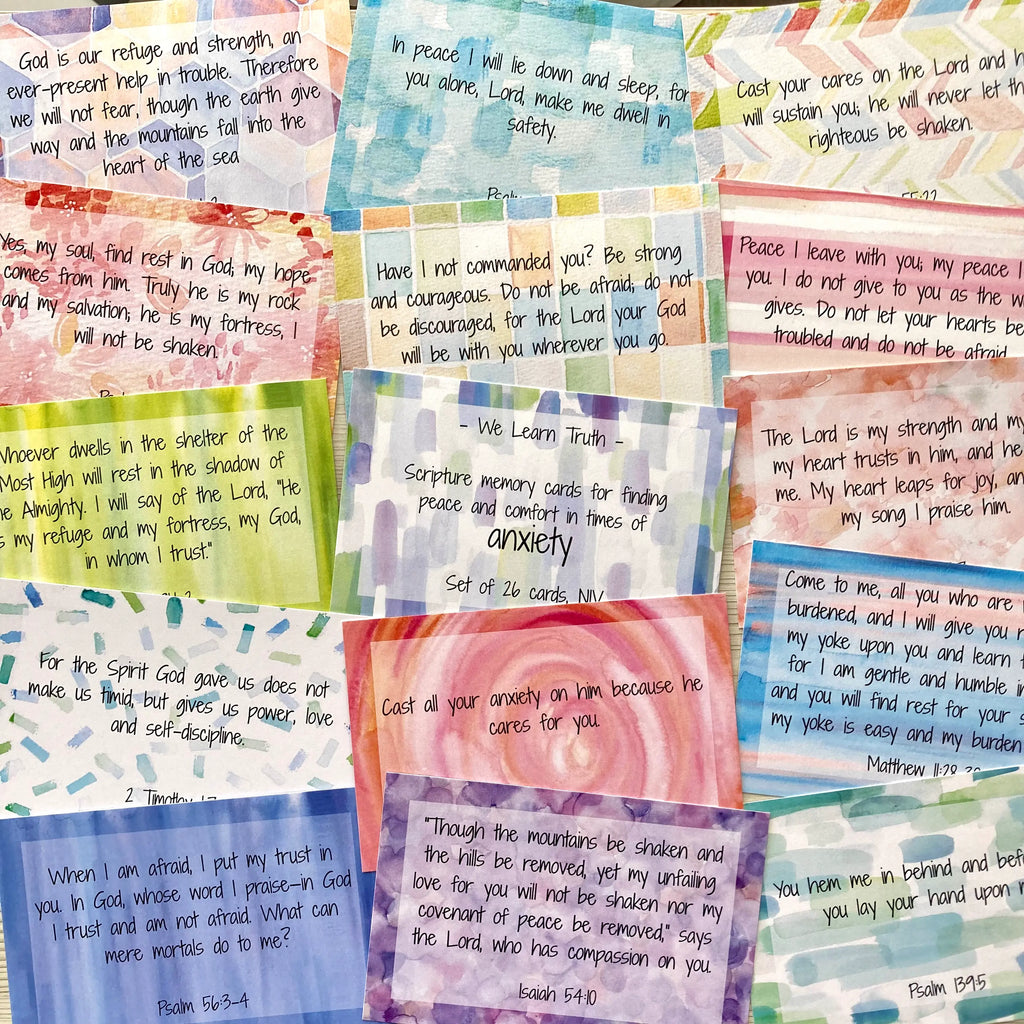 God is our refuge and strength, an
ever-present help in trouble. Therefore
we will not fear, though the earth give
way and the mountains fall into the
heart of the sea
In peace I will lie down and sleep, for
you alone, Lord, make me dwell in
safety.
Cast your cares on the Lord and h
will sustain you; he will never let th
righteous be shaken.
55:22
Yes, my soul, find rest in God; my hope
comes from him. Truly he is my rock
and my salvation; he is my fortress, I
will not be shaken.
Have I not commanded you? Be strong
and courageous. Do not be afraid; do not
be discouraged, for the Lord your God
will be with you wherever you go.
Peace I leave with you; my peace I
you. I do not give to you as the w
gives. Do not let your hearts be
troubled and do not be afraid
Whoever dwells in the shelter of the
Most High will rest in the shadow of
he Almighty. I will say of the Lord, "He
s my refuge and my fortress, my God,
in whom I trust."
- We Learn Truth -
Scripture memory cards for finding
peace and comfort in times of
anxiety
Set of 26 cards, NIV
The Lord is my strength and my
my heart trusts in him, and he
me. My heart leaps for joy, an
my song I praise him.
For the Spirit God gave us does not
make us timid, but gives us power, love
and self-discipline.
2 Timothy 1:7
Cast all your anxiety on him because he
cares for you.
Come to me, all you who are
burdened, and I will give you r
my yoke upon you and learn
for I am gentle and humble i
and you will find rest for your s
my yoke is easy and my burden
Matthew 11:28-30
When I am afraid, I put my trust in
you. In God, whose word I praise—in God
I trust and am not afraid. What can
mere mortals do to me?
Psalm 56:3-4
"Though the mountains be shaken and
the hills be removed, yet my unfailing
love for you will not be shaken nor my
covenant of peace be removed," says
the Lord, who has compassion on you.
Isaiah 54:10
You hem me in behind and bef
you lay your hand upon
Psalm 139:5